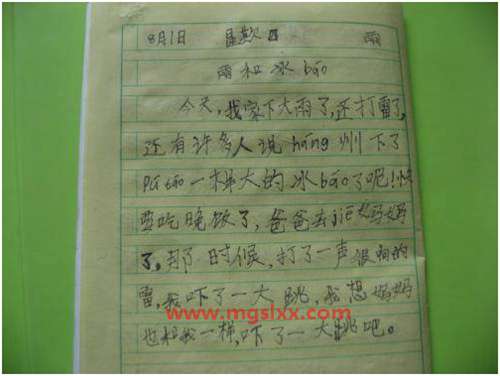 8月1日 星期日 雨
雨和冰báo
今天,我家下大雨了,还打雷了,
还有许多人说háng州下了
Pú táo一样大的冰báo了呢!快
要吃晚饭了,爸爸去jiē妈妈
了,那时候,打了一声很响的
雷,我吓了一大跳,我想妈妈
www.mgslxx.com
也和我一样,吓了一大跳吧。